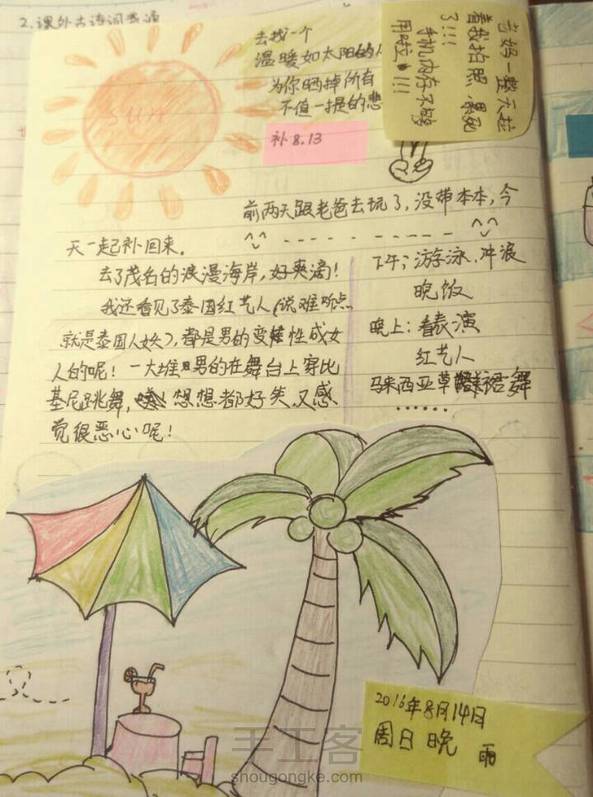 2.课外古诗词
去找一个
温暖如太阳的人
为你晒掉所有
不值一提的悲
当妈一整天拉
着我拍照,累死
了!!!
手机内存不够
用啦!!!
sun
补8.13
前两天跟老爸去玩了,没带本本,今
天一起补回来。
去了茂名的浪漫海岸,好爽滴!
我还看见了泰国红艺人(说难听点
就是泰国人妖),都是男的变性成女
人的呢!一大堆男的在舞台上穿比
基尼跳舞,想想都好笑,又感
觉很恶心呢!
下午:游泳、冲浪
晚饭
晚上:看表演
红艺人
马来西亚草裙舞
……
2016年8月14日
周日 晚 雨
手工客
shougongke.com